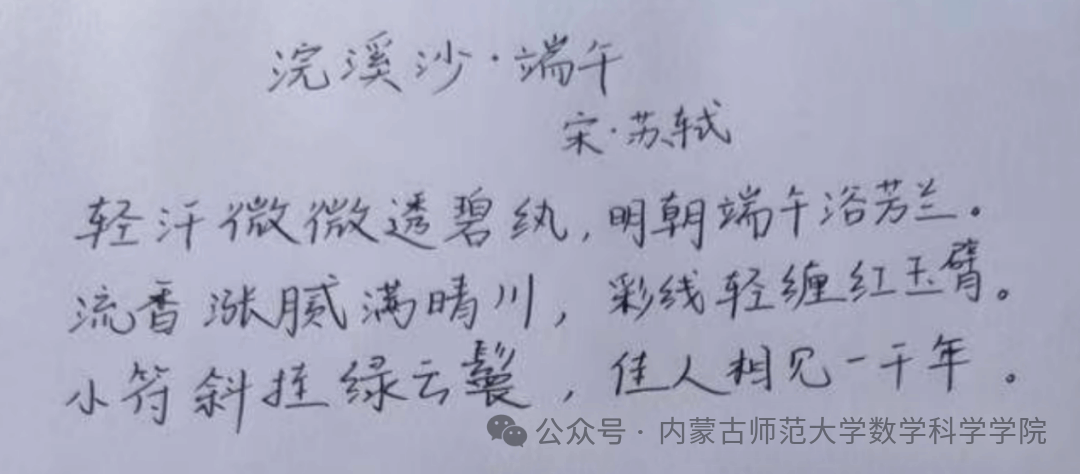 浣溪沙·端午
宋·苏轼
轻汗微微透碧纨,明朝端午浴芳兰。
流香涨腻满晴川,彩线轻缠红玉臂。
小符斜挂绿云鬟,佳人相见一千年。
公众号·内蒙古师范大学数学科学学院